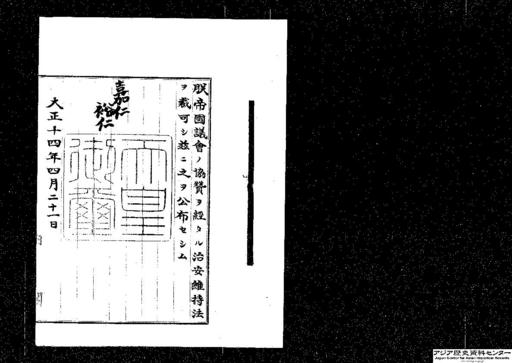 朕帝國議會ノ協贊ヲ經タル治安維持法
ヲ裁可シ玆ニ之ヲ公布セシム
嘉仁
裕仁
天皇
御璽
大正十四年四月二十一日
アジア歴史資料センター
Japan Center for Asian Historical Records